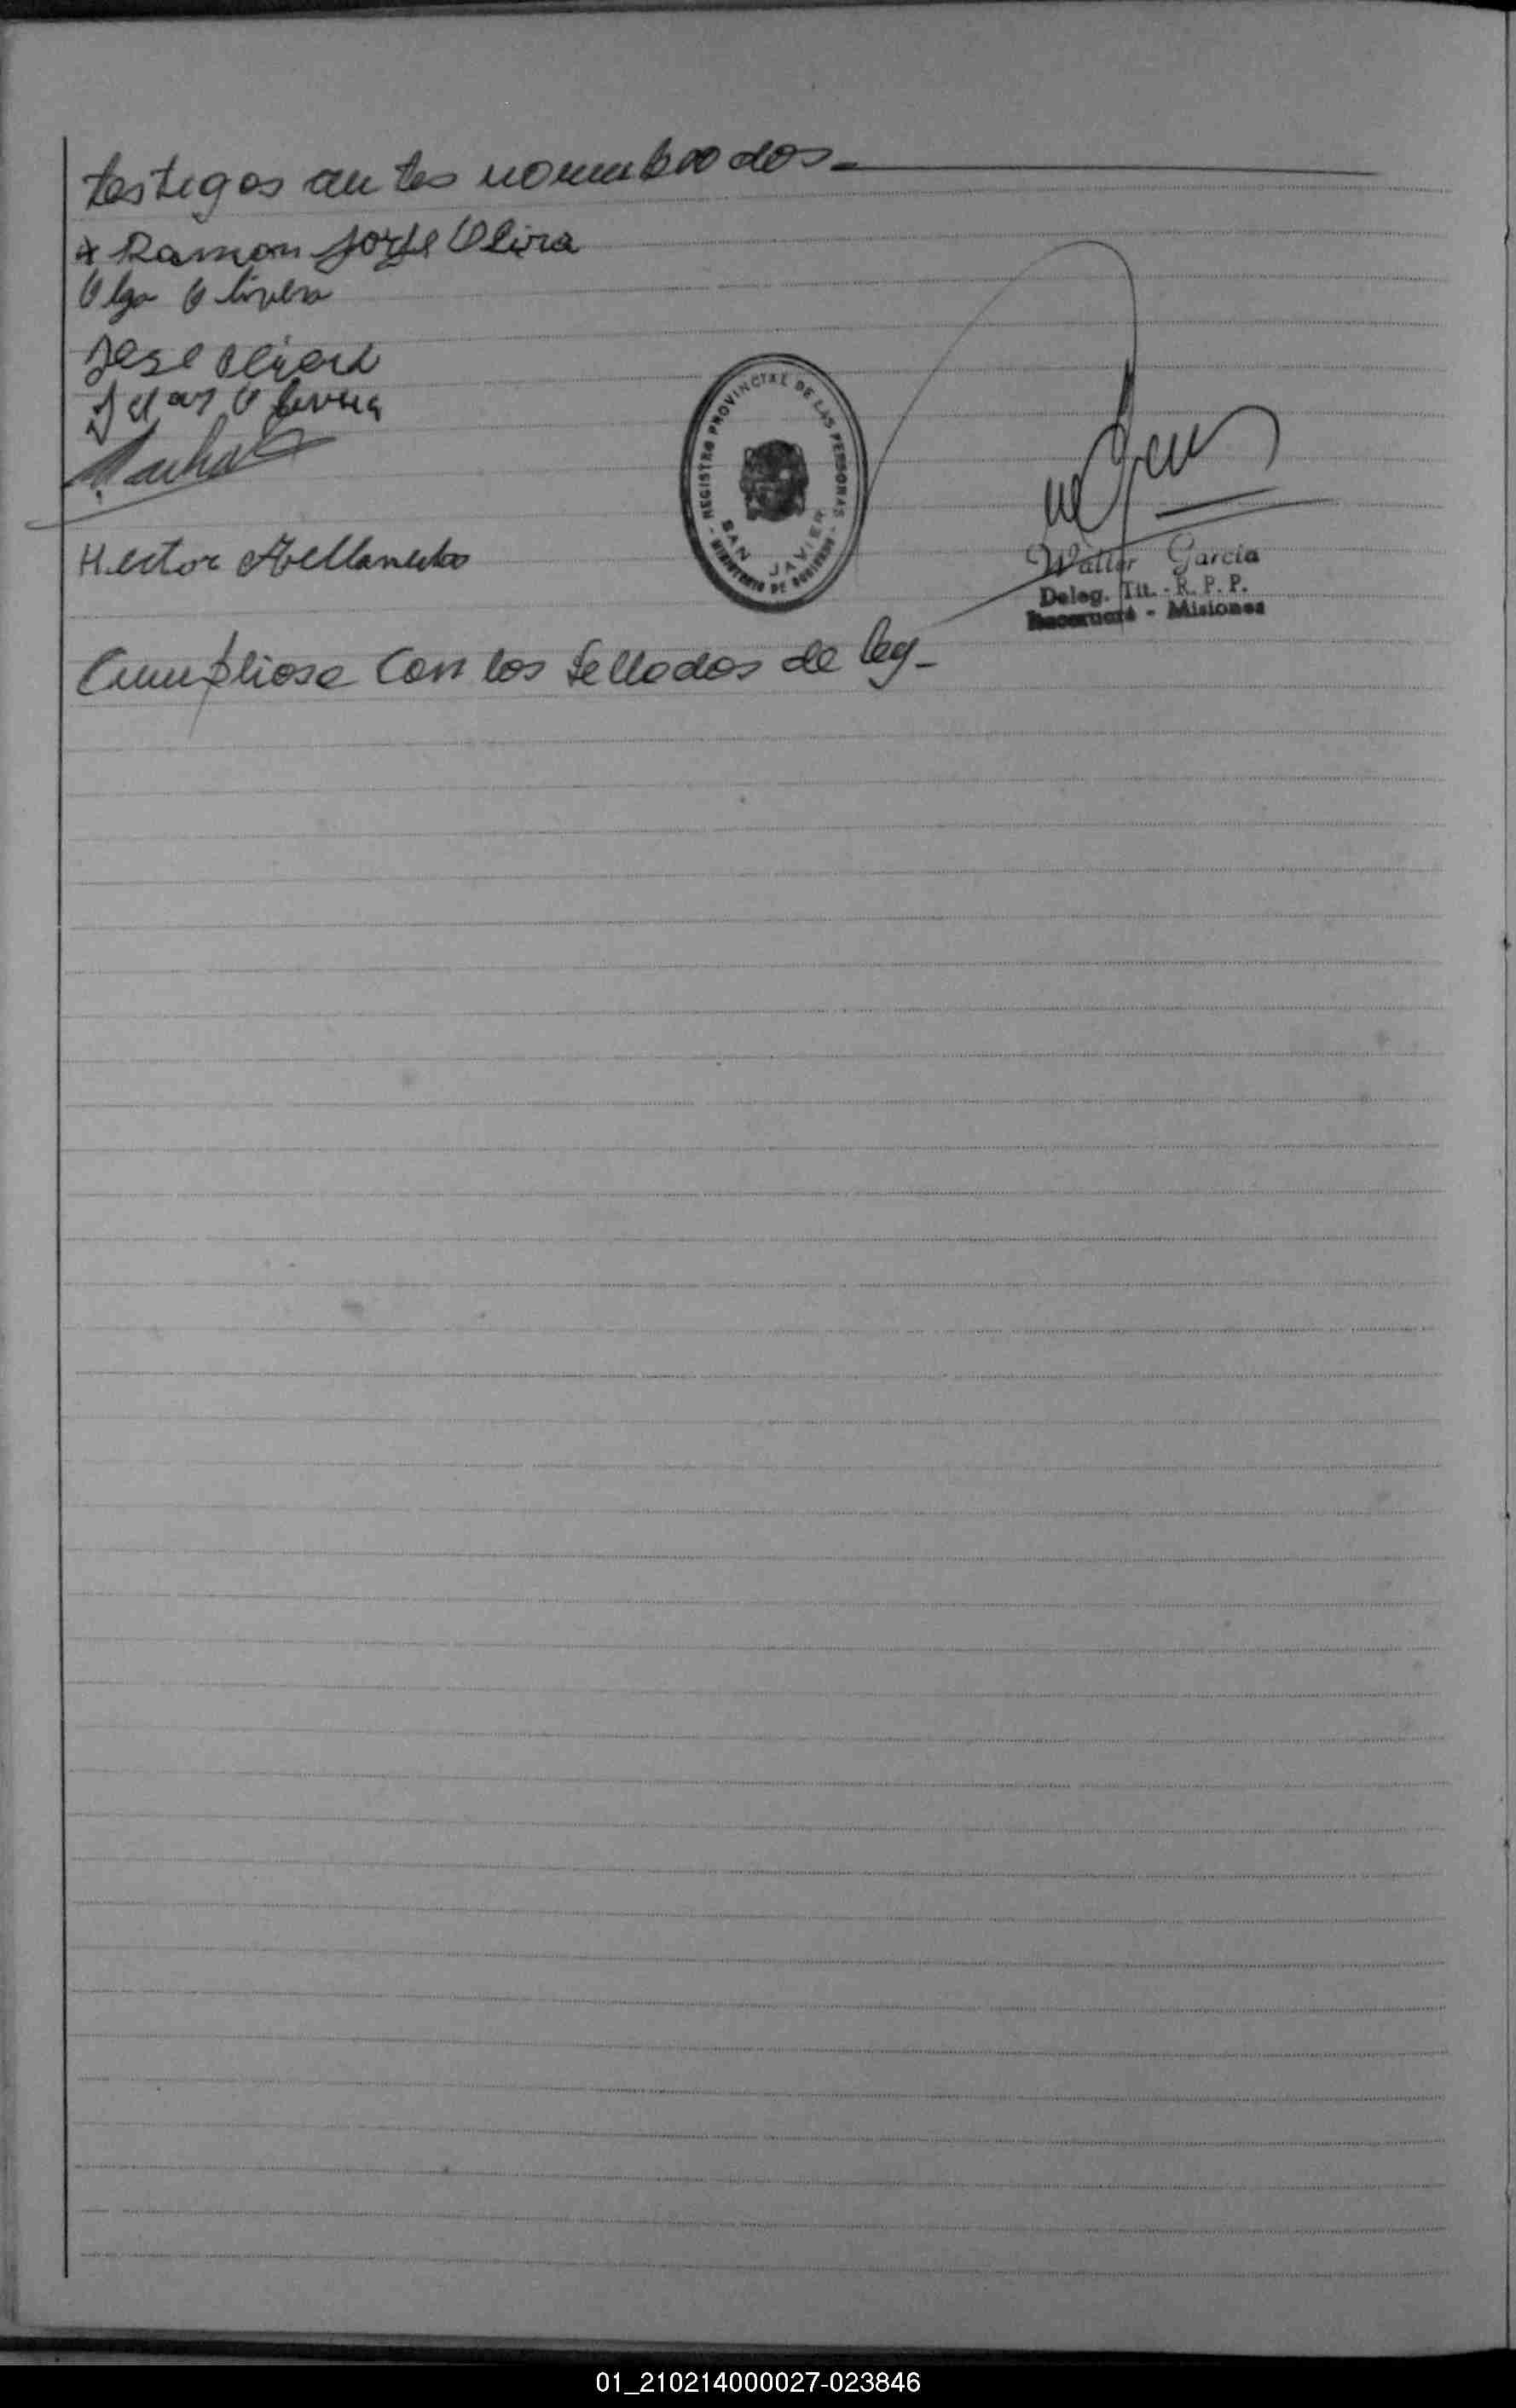 testigos antes nombrados.-
x Ramon Jorge Olira
Olga Olivera
Jose Olivera
Olivera
Hector Avellaneda
REGISTRO PROVINCIAL DE LAS PERSONAS
- MINISTERIO DE GOBIERNO -
SAN JAVIER
Walter Garcia
Deleg. Tit. - R. P. P.
- Misiones
Cumpliose Con los Sellados de ley-
01_210214000027-023846